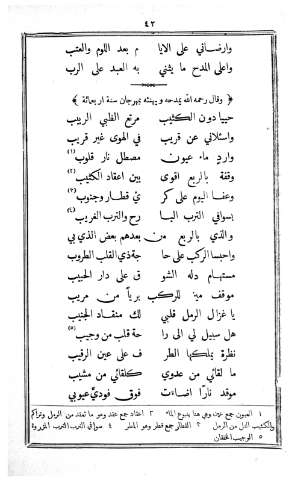 ٤٢
وارضاني على الايا م بعد اللوم والعتب
واعلى المدح ما يثني به العبد على الرب
﴿ وقال رحمه الله يمدحه ويهنئه بمهرجان سنة اربعمائة ﴾
حييا دون الكثيب مرتع الظبي الربيب
واسئلاني عن قريب في الهوى غير قريب
وارد ماء عيون مصطل نار قلوب (١)
وقفة بالربع اقوى بين اعقاد الكثيب (٢)
وعفا اليوم على كر ي قطار وجنوب (٣)
بسوافي الترب البا رح والترب الغريب (٤)
والذي بالربع من بعدهم بعض الذي بي
واحبسا الركب على حا جة ذي القلب الطروب
مستهام دله الشو ق على دار الحبيب
موقف ميز للركب برياً من مريب
يا غزال الرمل قلبي لك منقاد الجنيب
هل سبيل لي الى را حة قلب من وجيب (٥)
نظرة يملكها الطر ف على عين الرقيب
ما لقائي من عدوي كلقائي من مشيب
موقد نارًا اضاءت فوق فوديَّ عيوبي
١ العيون جمع عين وهي هنا ينبوع الماء ٢ اعقاد جمع عقد وهو ما تعقد من الرمل وتراكم
والكثيب التل من الرمل ٣ القطار جمع قطر وهو المطر ٤ سوافي الترب الترب المذروة
٥ الوجيب الخفقان